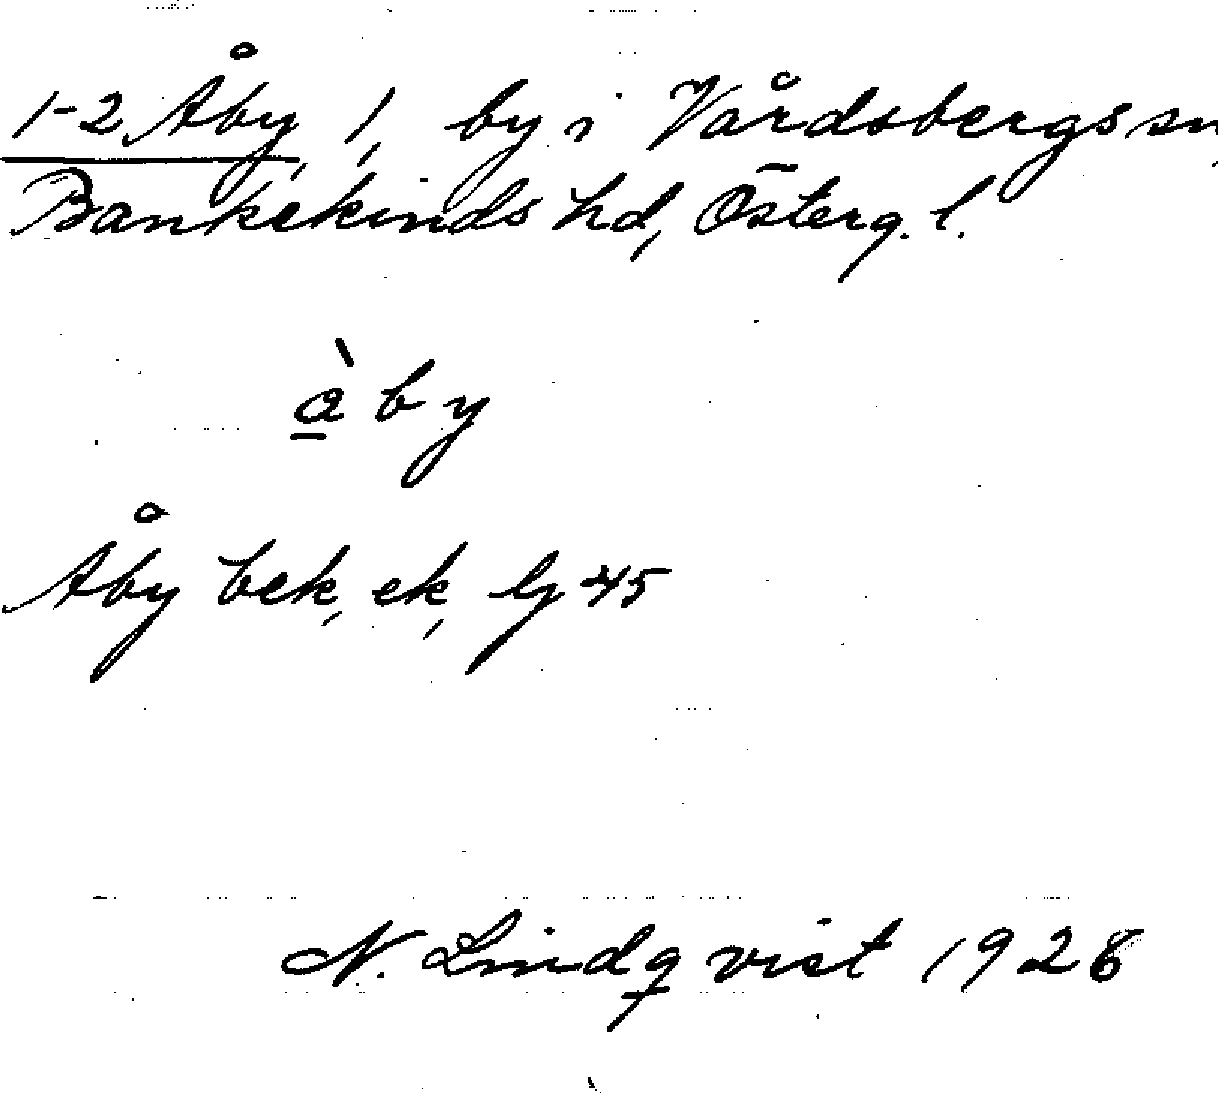 1-2 Åby, 1, by i Vårdsbergs sn,
Bankekinds hd, Österg. l.
àby
Åby bek, ek, lj 45
N. Lindqvist 1928